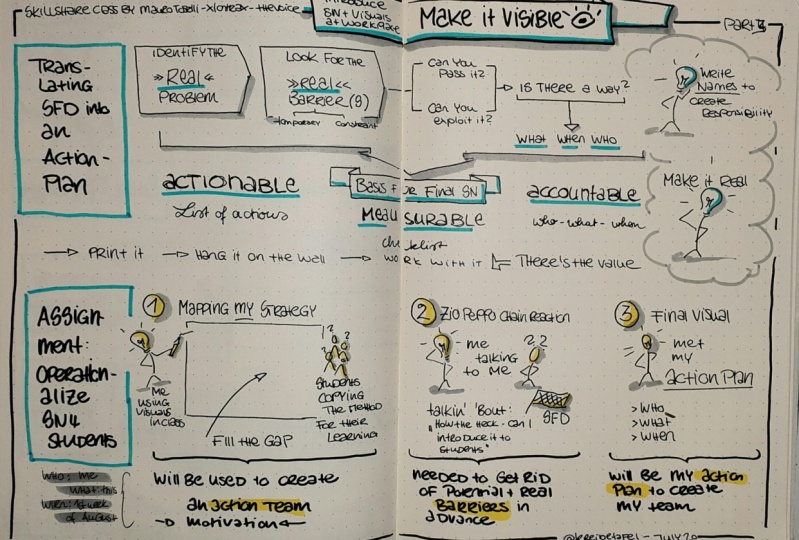 SKILLSHARE CLASS BY MAURO TOSELLI - XLONTRAX - THE VOICE
INTRODUCE
SN + VISUALS
AT WORKPLACE
MAKE IT VISIBLE
PART 3
TRANS-
LATING
SFD INTO
AN
ACTION-
PLAN
IDENTIFY THE
» REAL «
PROBLEM
LOOK FOR THE
» REAL «
BARRIER(S)
TEMPORARY CONSTRAINT
CAN YOU
PASS IT?
CAN YOU
EXPLOIT IT?
IS THERE A WAY?
WHAT WHEN WHO
WRITE
NAMES TO
CREATE
RESPONSIBILITY
MAKE IT REAL
ACTIONABLE
LIST OF ACTIONS
BASIS FOR FINAL SN
MEASURABLE
CHECKLIST
ACCOUNTABLE
WHO - WHAT - WHEN
PRINT IT → HANG IT ON THE WALL → WORK WITH IT THERE'S THE VALUE
ASSIGN-
MENT:
OPERATION-
ALIZE
SN 4
STUDENTS
WHO: ME
WHAT: THIS
OF AUGUST
1 MAPPING MY STRATEGY
ME
USING
VISUALS
IN CLASS
FILL THE GAP
? ? ?
STUDENTS
COPYING
THE METHOD
FOR THEIR
LEARNING
WILL BE USED TO CREATE
AN ACTION TEAM
→ MOTIVATION ←
2 ZIO PEPPO CHAIN REACTION
ME
TALKING
TO ME
? ?
TALKIN' 'BOUT:
"HOW THE HECK CAN I
INTRODUCE IT TO
STUDENTS"
SFD
NEEDED TO GET RID
OF POTENTIAL + REAL
BARRIERS IN
ADVANCE
3 FINAL VISUAL
ME +
MY
ACTION PLAN
> WHO
> WHAT
> WHEN
WILL BE MY ACTION
PLAN TO CREATE
MY TEAM
@KREIDETAFEL - JULY 20